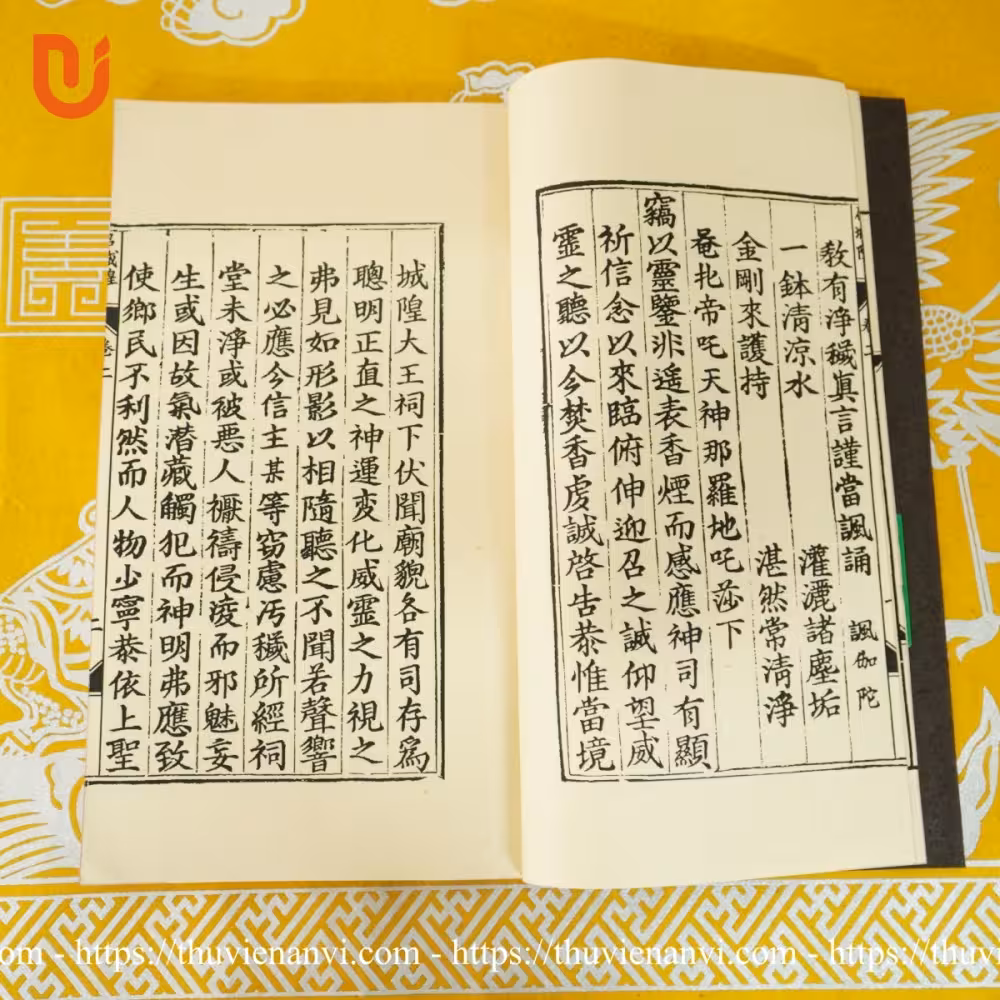 敎有淨穢眞言謹當諷誦 諷伽陀
一鉢清凉水 灌灑諸塵垢
金剛來護持 湛然常清淨
奄扎帝吒天神那羅地吒莎下
竊以靈鑒非遥表香煙而感應神司有顯
祈信念以來臨俯伸迎召之誠仰望威
靈之聽以今焚香虔誠啓告恭惟當境
城隍大王祠下伏聞廟貌各有司存爲
聰明正直之神運変化威靈之力視之
弗見如形影以相隨聽之不聞若聲響
之必應今信主某等窃慮汚穢所經祠
堂未淨或被悪人禳禱侵凌而邪魅妄
生或因故氣潛藏觸犯而神明弗應致
使鄉民不利然而人物少寧恭依上聖
卷二
二
https://thuvienanvi.com - https://thuvienanvi.com